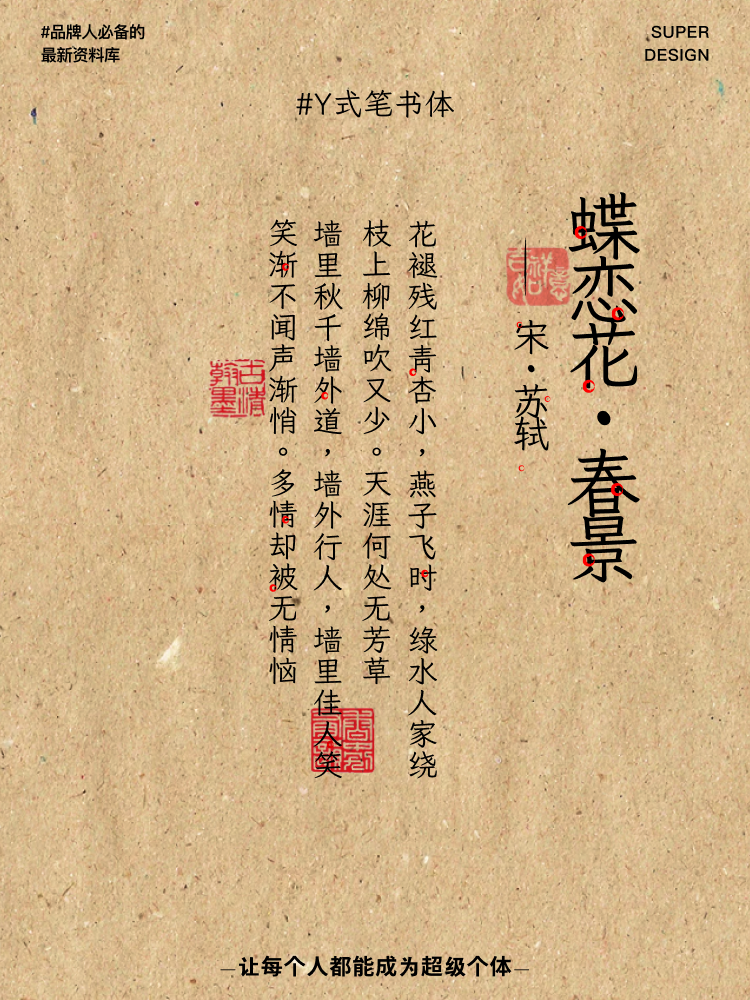 #品牌人必备的
最新资料库
SUPER
DESIGN
#Y式笔书体
蝶恋花·春景
宋·苏轼
花褪残红青杏小，燕子飞时，绿水人家绕
枝上柳绵吹又少。天涯何处无芳草
墙里秋千墙外道，墙外行人，墙里佳人笑
笑渐不闻声渐悄。多情却被无情恼
古清
翰墨
—让每个人都能成为超级个体—